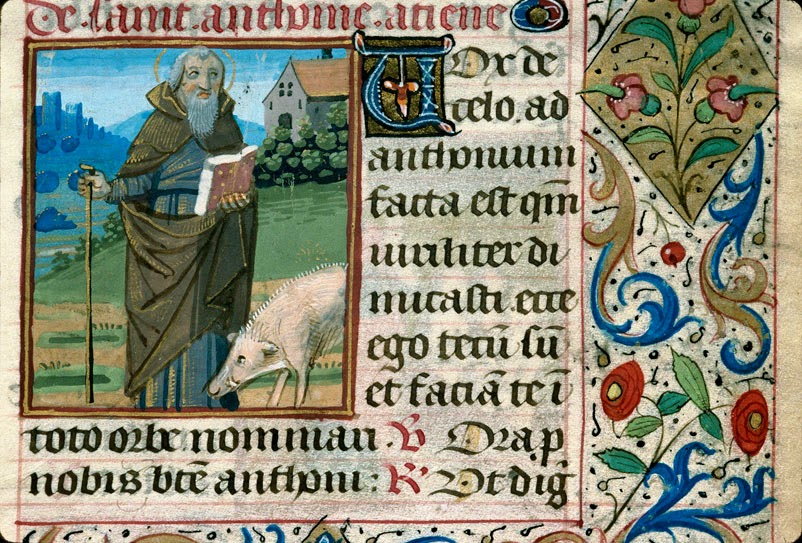 De saint anthoine. a ti ene
Uox de
celo. ad
anthonium
facta est qm̄
uiriliter di
micasti. ecce
ego tecū sū
et faciā te ī
toto orbe nominari. ℣ Ora p
nobis bt̄e anthoni: ℟ Ut diḡ